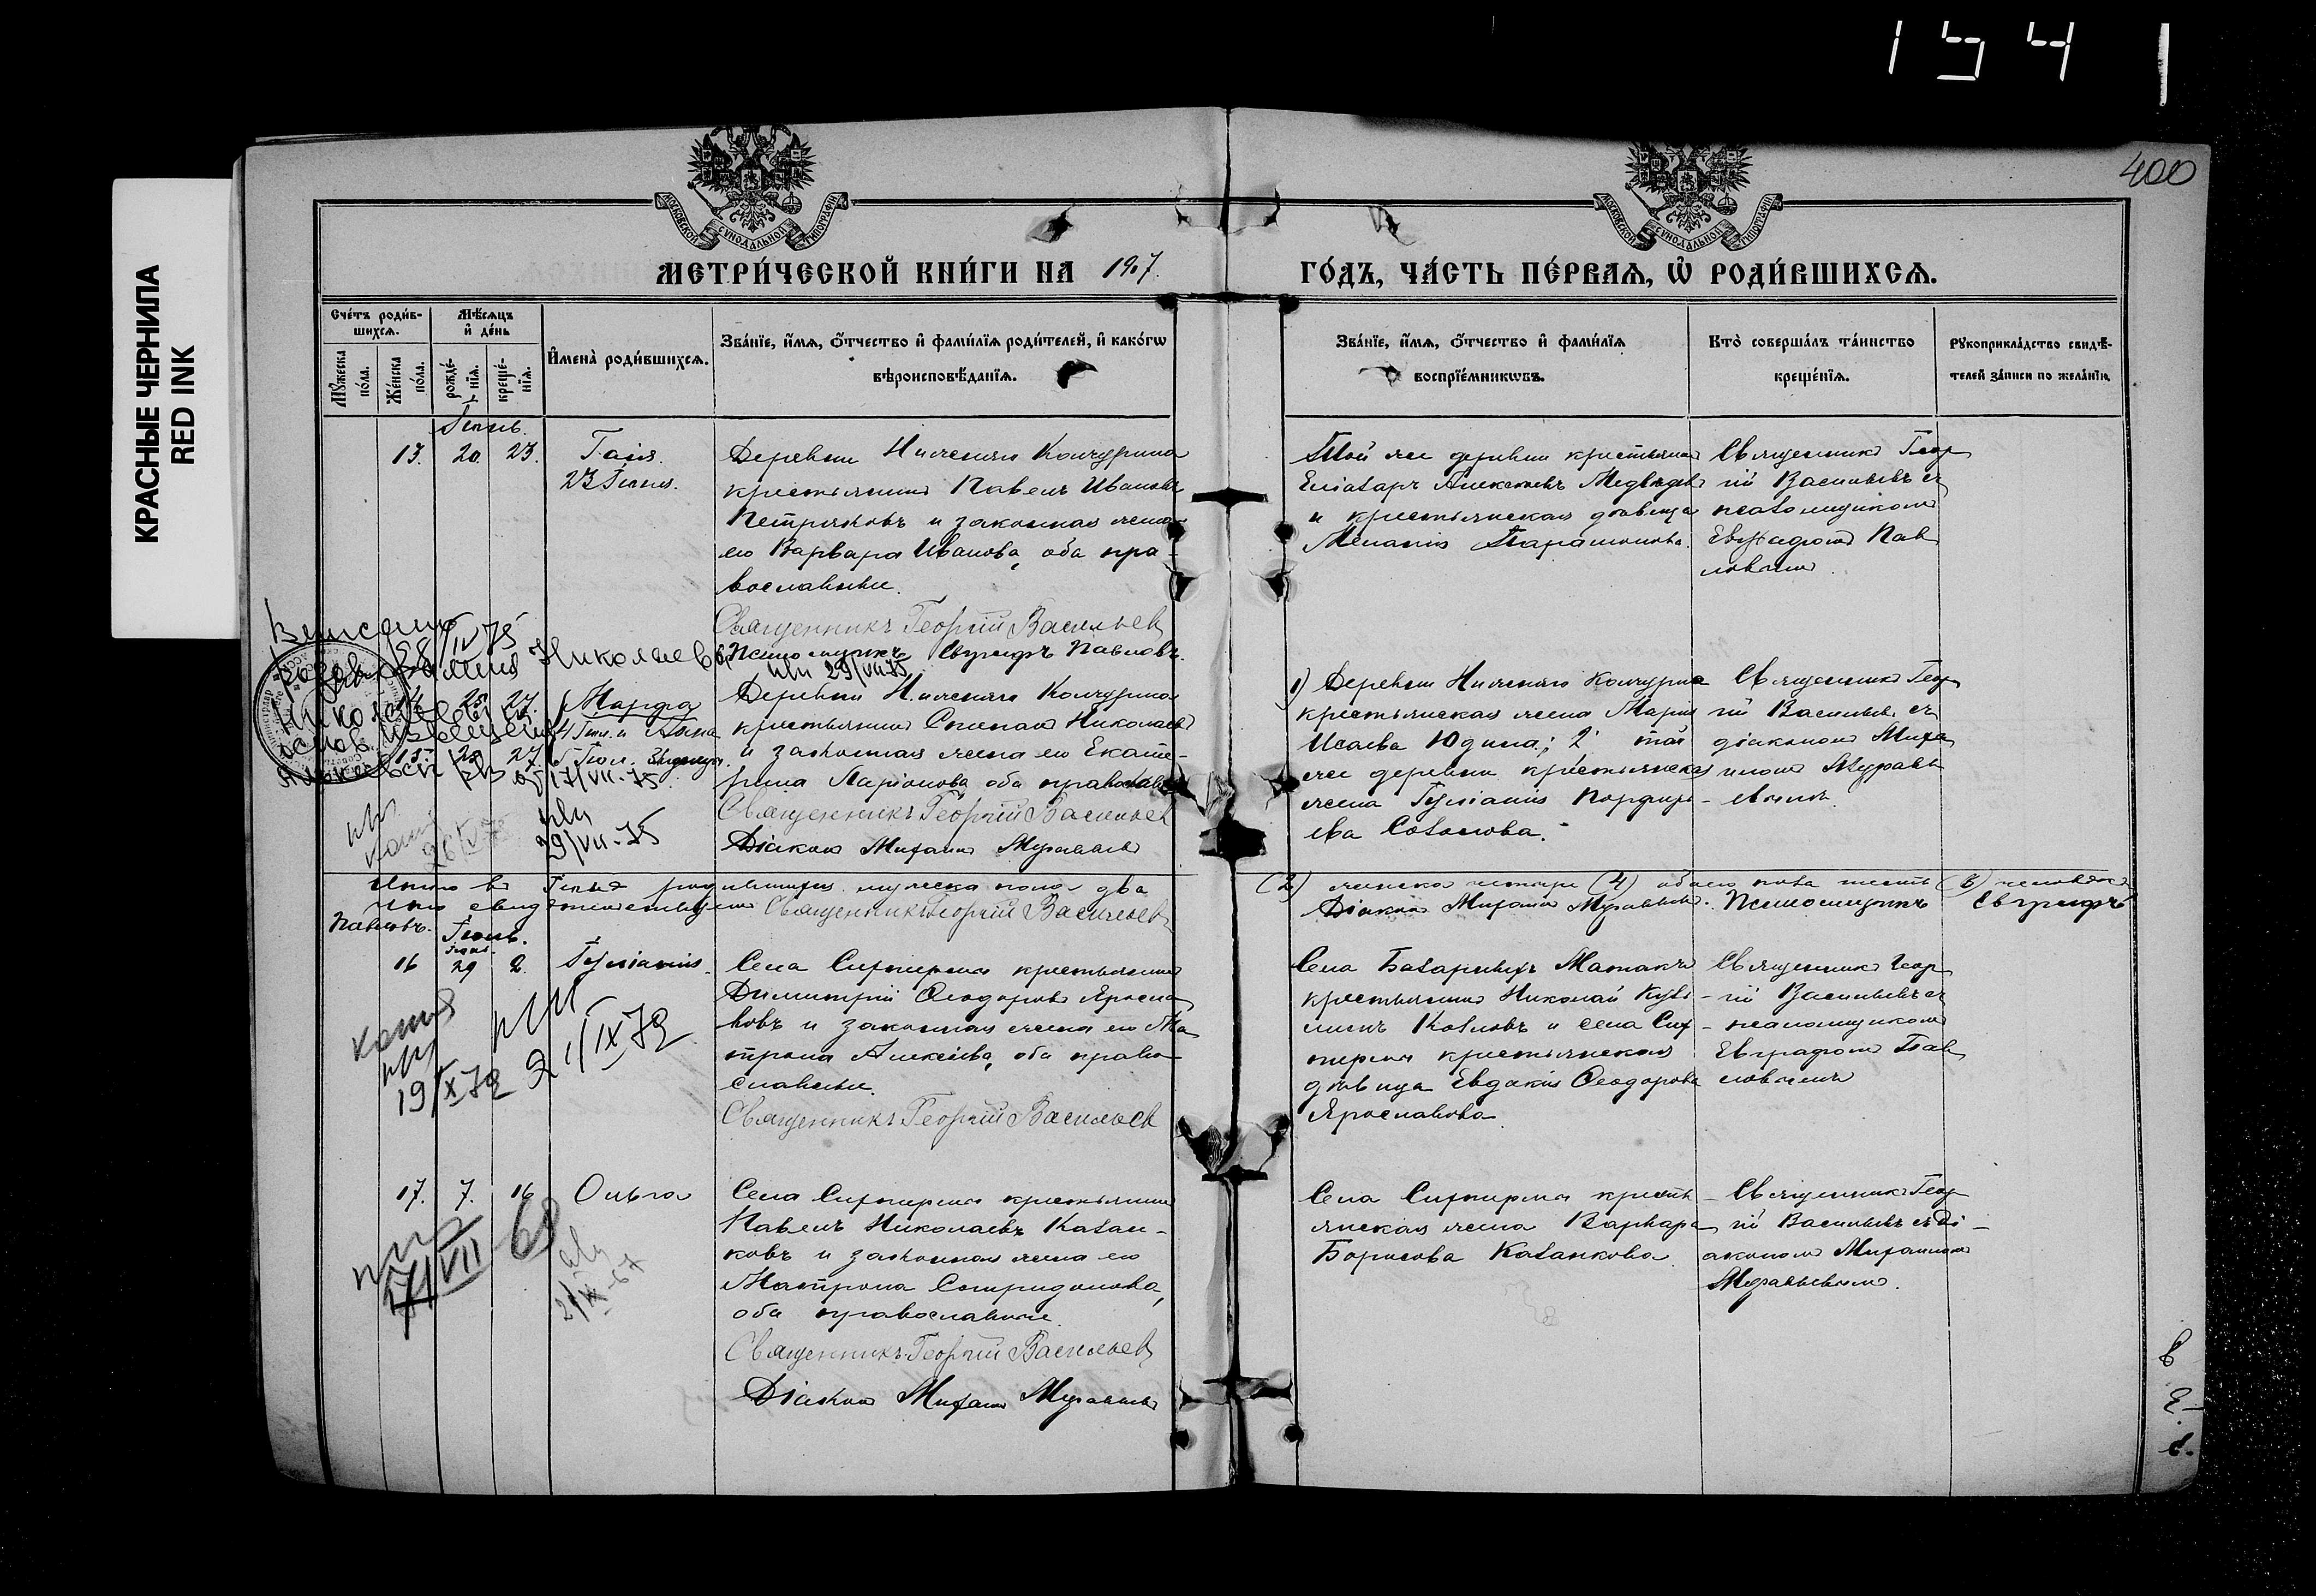 1541
КРАСНЫЕ ЧЕРНИЛА
RED INK
400
МОСКОВСКОЙ СѴНОДАЛЬНОЙ ТИПОГРАФІИ
МОСКОВСКОЙ СѴНОДАЛЬНОЙ ТИПОГРАФІИ
МЕТРИ́ЧЕСКОЙ КНИ́ГИ НА 1907.
ГО́ДЪ, ЧА́СТЬ ПЕ́РВАЯ, Ѡ҆ РОДИ́ВШИХСЯ.
Сче́тъ роди́вшихся.
Мѣ́сяцъ и де́нь
Мꙋ́жеска по́ла.
Же́нска по́ла.
рожде́нїя.
креще́нїя.
И҆мена̀ роди́вшихся.
Зва́нїе, и҆́мя, ѻ҆́тчество и҆ фами́лїя роди́телей, и҆ како́гѡ
вѣроисповѣ́данїя.
Зва́нїе, и҆́мя, ѻ҆́тчество и҆ фами́лїя
воспрїе́мникѡвъ.
Кто̀ соверша́лъ та́инство
креще́нїя.
Рꙋкоприкла́дство свидѣ́-
телей за́писи по жела́нїю.
Іюнь.
13. 20. 23.
Гаія
23 Іюня.
Деревни Нижняго Колчурина
крестьянинъ Павелъ Ивановъ
Петряковъ и законная жена
его Варвара Иванова, оба пра-
вославные.
Священникъ Георгій Васильевъ
Псаломщикъ Евграфъ Павловъ.
Той же деревни крестьянинъ
Елиазаръ Алексѣевъ Медвѣдевъ
и крестьянская дѣвица
Меланія Парамонова.
Священникъ Геор-
гій Васильевъ съ
псаломщикомъ
Евграфомъ Пав-
ловымъ.
29/VII 75
14. 25. 27.
Марѳа
4 Іюл. и Анна
15. 25 27.
5 Іюл.
17/VII-75
29/VII-75
Деревни Нижняго Колчурина
крестьянинъ Степанъ Николаевъ
и законная жена его Екате-
рина Ларіонова оба православ.
Священникъ Георгій Васильевъ
Діаконъ Михаилъ Муравьевъ
1) Деревни Нижняго Колчурина
крестьянская жена Марія
Исаева Юдина; 2. той
же деревни крестьянская
жена Іуліанія Порфирь-
ева Созонова.
Священникъ Геор-
гій Васильевъ съ
діакономъ Миха-
иломъ Муравь-
евымъ.
Итого въ Іюнѣ родившихся мужеска пола два
(2) женска четыре (4) обоего пола шесть (6) человѣкъ
Священникъ Георгій Васильевъ
Діаконъ Михаилъ Муравьевъ. Псаломщикъ Евграфъ
Павловъ.
Іюль.
Іюнь
16 29 2.
Іуліанія.
Села Сихтерма крестьянинъ
Димитрій Ѳеодоровъ Яросла-
вовъ и законная жена его Ма-
трона Алексѣева, оба право-
славные.
Священникъ Георгій Васильевъ
Села Базарныхъ Матакъ
крестьянинъ Николай Кузь-
минъ Козловъ и села Сих-
терма крестьянская
дѣвица Евдокія Ѳеодорова
Ярославова.
Священникъ Геор-
гій Васильевъ съ
псаломщикомъ
Евграфомъ Пав-
ловымъ
копия
19/X 72 21/IX 72
17. 7. 16
Ольга
Села Сихтерма крестьянинъ
Павелъ Николаевъ Казан-
ковъ и законная жена его
Матрона Спиридонова,
оба православные.
Священникъ Георгій Васильевъ
Діаконъ Михаилъ Муравьевъ
Села Сихтерма кресть-
янская жена Варвара
Борисова Казанкова
Священникъ Геор-
гій Васильевъ съ ді-
акономъ Михаиломъ
Муравьевымъ.